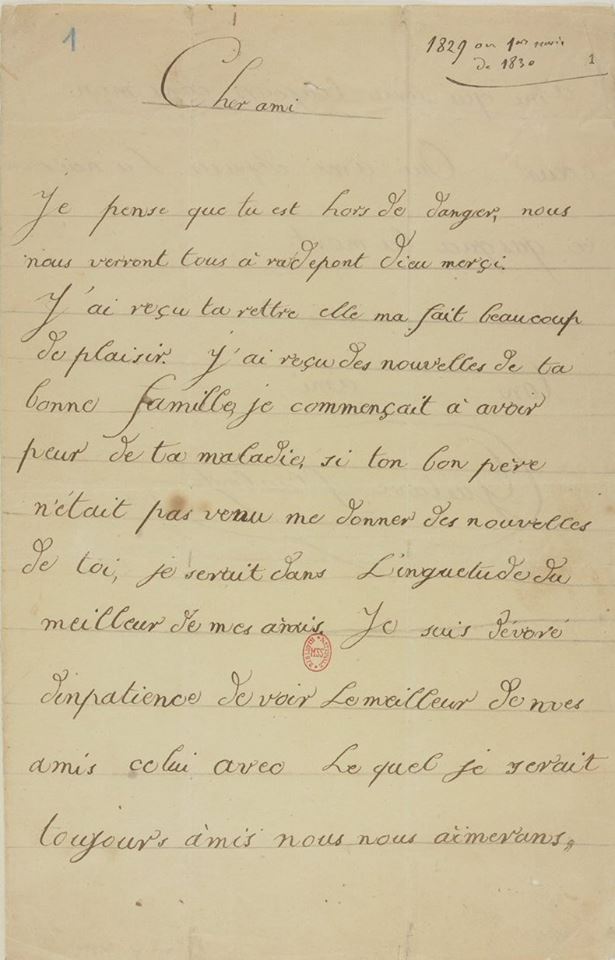 1
1829 ou 1ers mois
de 1830
1
Cher ami
Je pense que tu est hors de danger, nous
nous verront tous à radepont dieu merçi.
J'ai reçu ta rettre elle ma fait beaucoup
de plaisir. J'ai reçu des nouvelles de ta
bonne famille, je commençait à avoir
peur de ta maladie, si ton bon père
n'était pas venu me donner des nouvelles
de toi, je serait dans L'inguetude du
meilleur de mes amis. Je suis dévoré
dinpatience de voir Le meilleur de mes
amis celui avec Le quel je serait
toujours àmis nous nous aimerans,
MSS